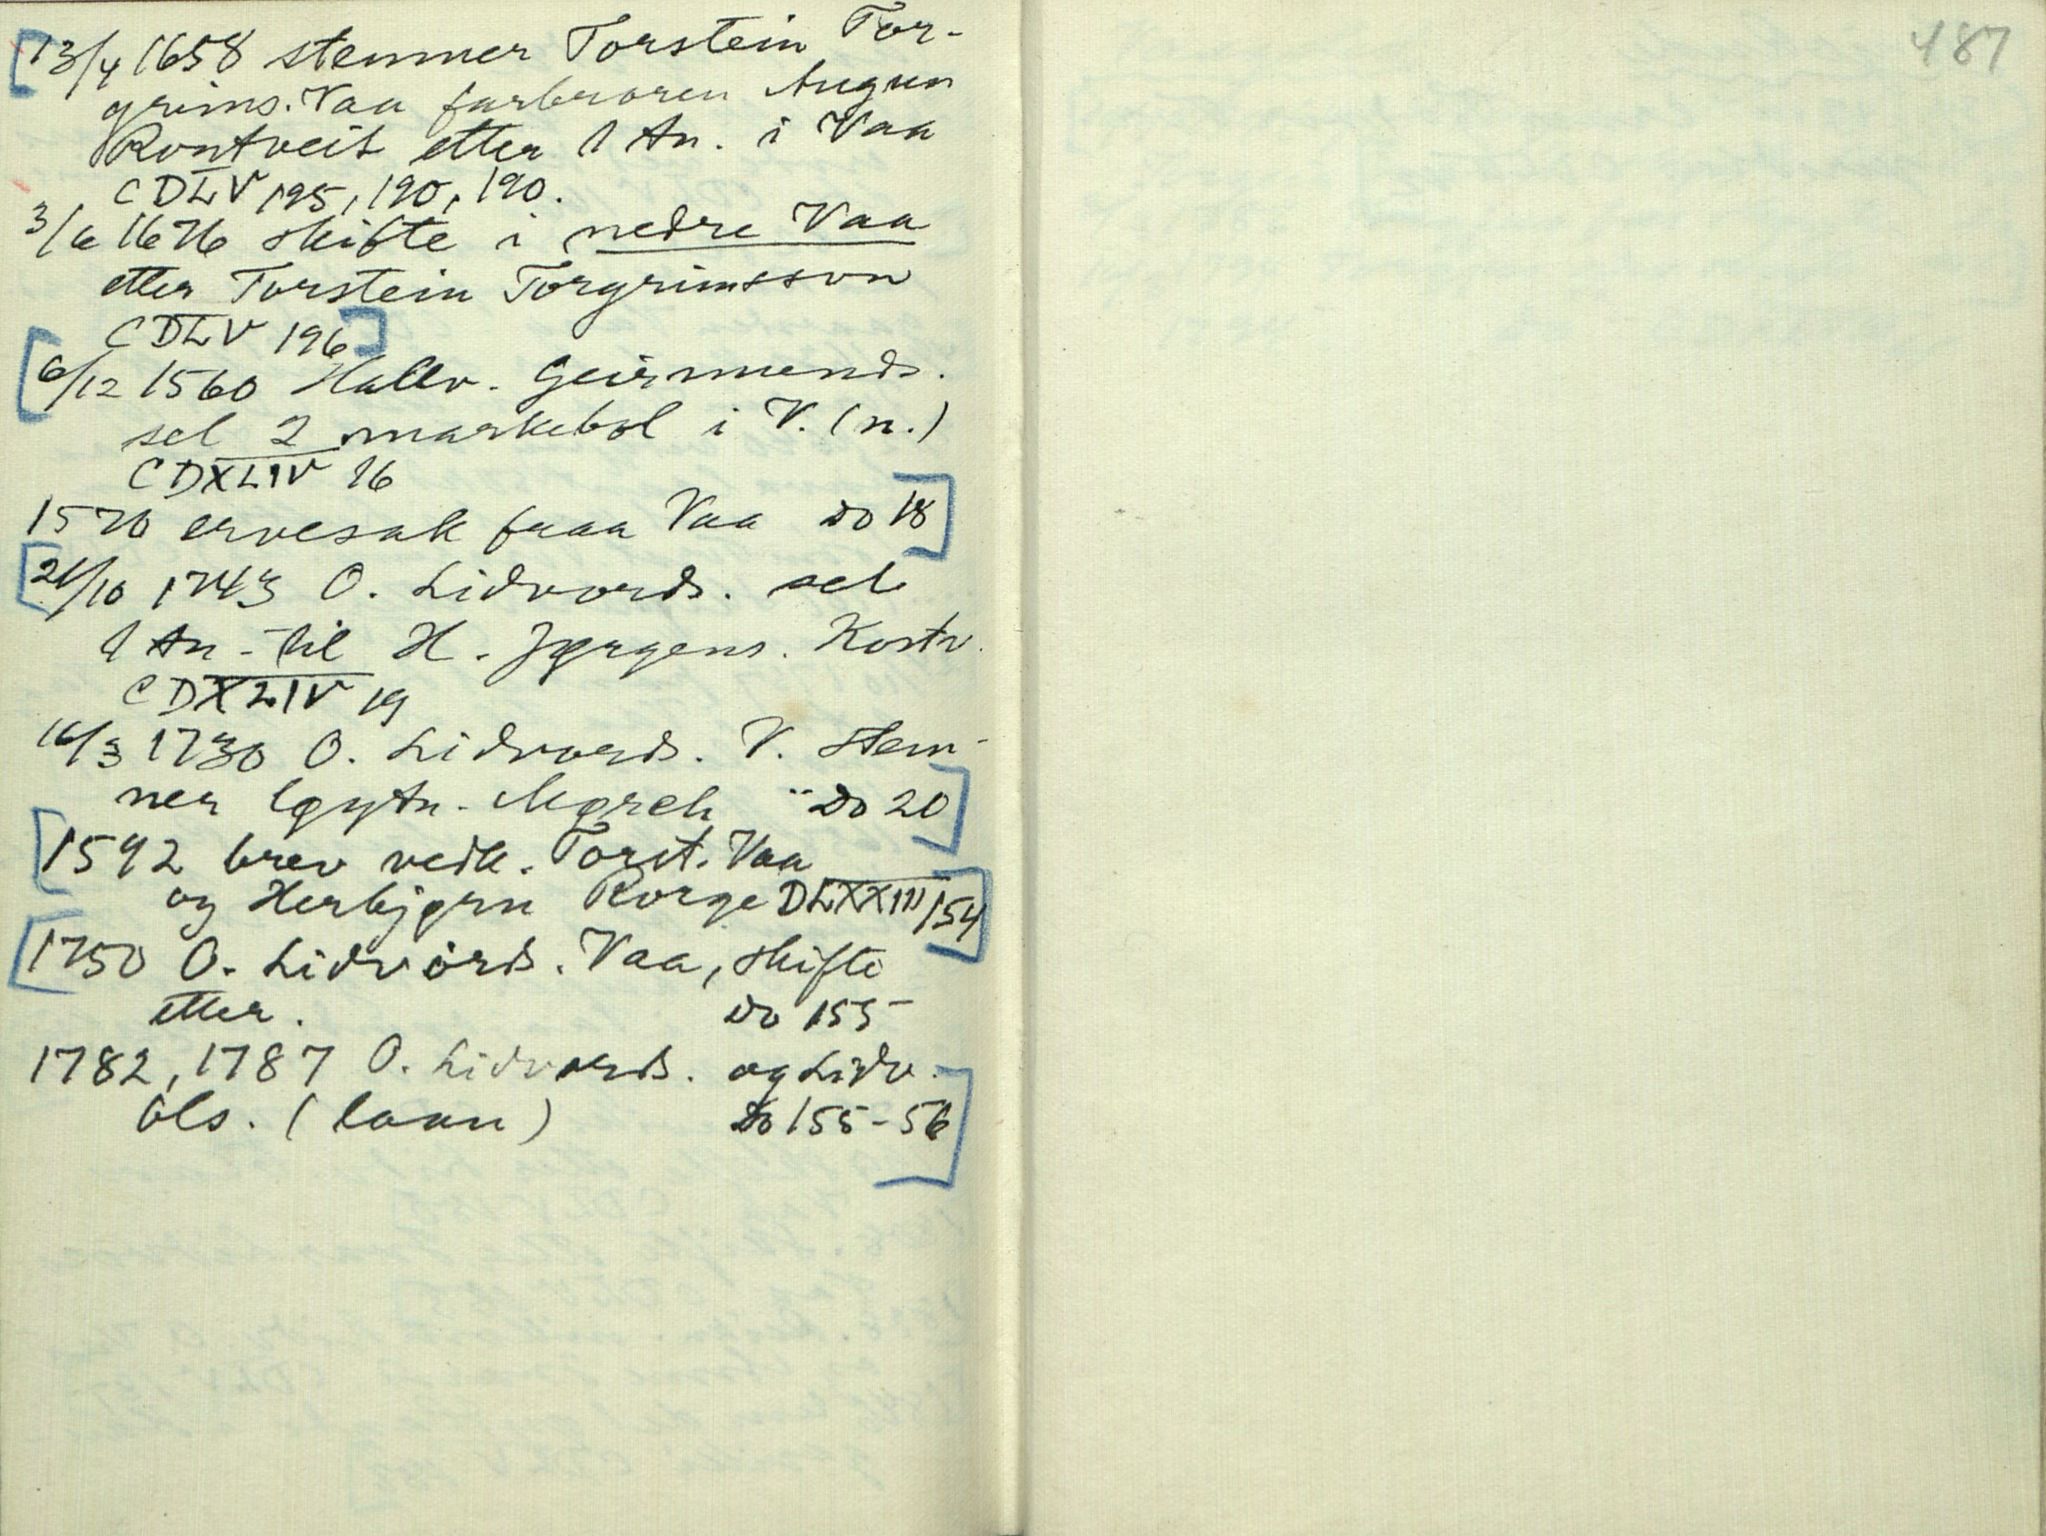 13/4 1658 stemner Torstein Tor-
grims. Vaa farbroren Augun
Rontveit etter 1 An. i Vaa
CDLV 195, 190, 190.
3/6 1676 skifte i nedre Vaa
etter Torstein Torgrimsson
CDLV 196
6/12 1560 Hallv. Geirmunds.
sel 2 markebol i V. (n.)
CDXLIV 16
1570 ervesak fraa Vaa Do 18
21/10 1743 O. Lidvords. sel
1 An - til H. Jørgens. Kostv.
CDXLIV 19
16/3 1730 O. Lidvords. V. stem-
ner løytn. Mørch Do 20
1592 brev vedk. Torst. Vaa
og Herbjørn Rorge DLXXIII 154
1750 O. Lidvords. Vaa, skifte
etter. Do 155
1782, 1787 O. Lidvords. og Lidv.
Ols. (laan) Do 155-56
487